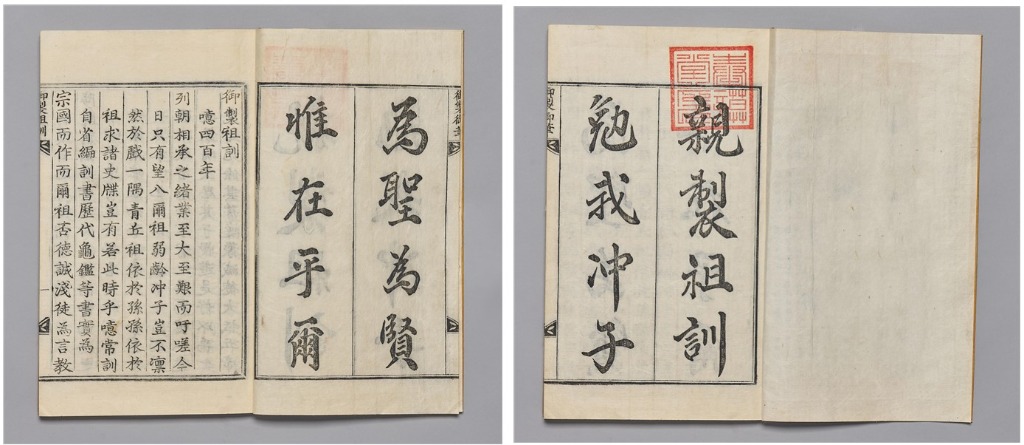 親製祖訓
勉我冲子
御製御書
為聖為賢
惟在乎爾
御製祖訓
噫四百年
列朝相承之緒業至大至艱而吁嗟今
日只有望八爾祖弱齡冲子豈不凛
然於戲一隅青丘祖依於孫孫依於
祖求諸史牒豈有若此時乎噫常訓
自省編訓書歷代龜鑑等書實為
宗國而作而爾祖否德誠淺徒為言教
御製祖訓
一